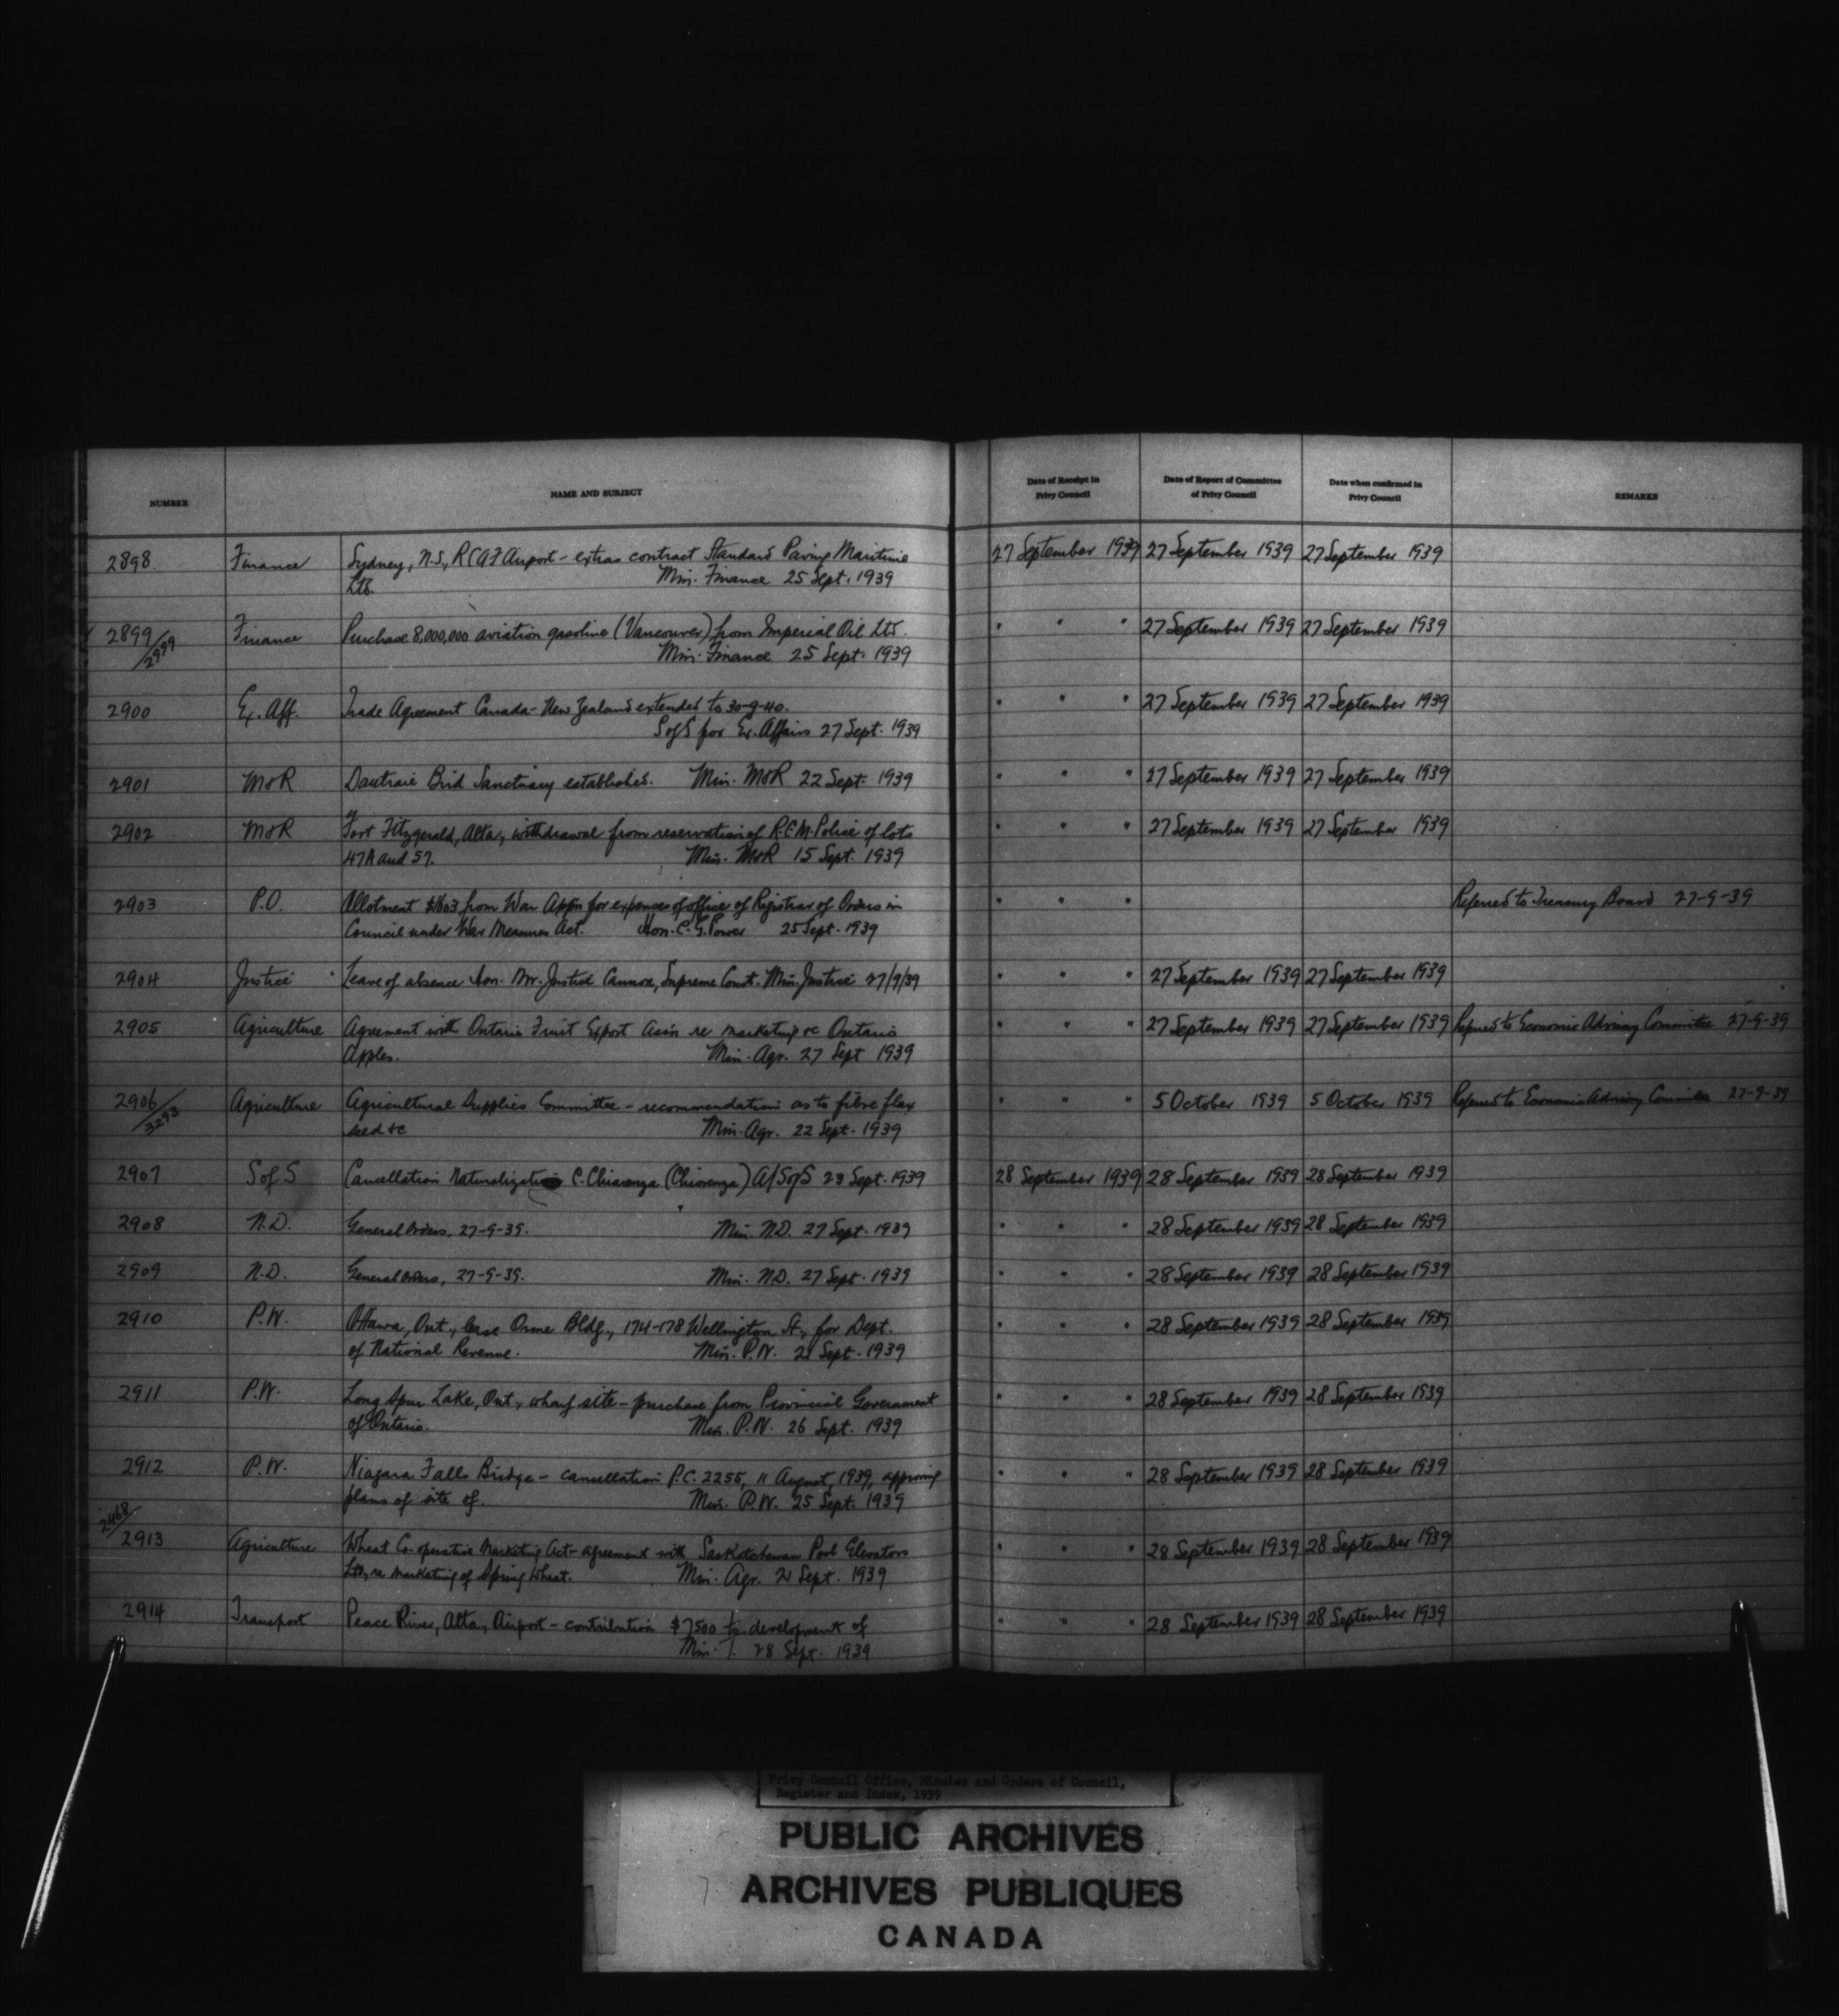 NUMBER NAME AND SUBJECT Date of Receipt in Privy Council Date of Report of Committee of Privy Council Date when confirmed in Privy Council REMARKS
2898 Finance Sydney, N.S., RCAF Airport - extras contract Standard Paving Maritime 27 September 1939 27 September 1939 27 September 1939
Ltd. Min. Finance 25 Sept. 1939
2899/2999 Finance Purchase 8,000,000 aviation gasoline (Vancouver) from Imperial Oil Ltd. " " " 27 September 1939 27 September 1939
Min. Finance 25 Sept. 1939
2900 Ex. Aff. Trade Agreement Canada - New Zealand extended to 30-9-40. " " " 27 September 1939 27 September 1939
S of S for Ex. Affairs 27 Sept. 1939
2901 M&R Bird Sanctuary established. Min. M&R 22 Sept. 1939 " " " 27 September 1939 27 September 1939
2902 M&R Fort Fitzgerald, Alta., withdrawal from reservation of R.C.M. Police of lots " " " 27 September 1939 27 September 1939
47A and 57. Min. M&R 15 Sept. 1939
2903 P.O. Allotment $1603 from War Appn for expenses of office of Registrar of Orders in " " " Referred to Treasury Board 27-9-39
Council under War Measures Act. Hon. C. G. Power 25 Sept. 1939
2904 Justice Leave of absence Hon. Mr. Justice Cannon, Supreme Court. Min. Justice 27/9/39 " " " 27 September 1939 27 September 1939
2905 Agriculture Agreement with Ontario Fruit Export Ass'n re marketing &c Ontario " " " 27 September 1939 27 September 1939 Referred to Economic Advisory Committee 27-9-39
Apples. Min. Agr. 27 Sept 1939
2906/3293 Agriculture Agricultural Supplies Committee - recommendations as to fibre flax " " " 5 October 1939 5 October 1939 Referred to Economic Advisory Committee 27-9-39
seed &c Min. Agr. 22 Sept. 1939
2907 S of S Cancellation Naturalization C. Chiarenza (Chiorenza) A/S of S 23 Sept. 1939 28 September 1939 28 September 1939 28 September 1939
2908 N.D. General Orders, 27-9-39. Min. N.D. 27 Sept. 1939 " " " 28 September 1939 28 September 1939
2909 N.D. General Orders, 27-9-39. Min. N.D. 27 Sept. 1939 " " " 28 September 1939 28 September 1939
2910 P.W. Ottawa, Ont., lease Orme Bldg., 174-178 Wellington St., for Dept. " " " 28 September 1939 28 September 1939
of National Revenue. Min. P.W. 21 Sept. 1939
2911 P.W. Long Spur Lake, Ont., wharf site - purchase from Provincial Government " " " 28 September 1939 28 September 1939
of Ontario. Min. P.W. 26 Sept. 1939
2912 P.W. Niagara Falls Bridge - cancellation P.C. 2255, 11 August, 1939, approving " " " 28 September 1939 28 September 1939
plans of site of. Min. P.W. 25 Sept. 1939
2468/2913 Agriculture Wheat Co-operative Marketing Act - agreement with Saskatchewan Pool Elevators " " " 28 September 1939 28 September 1939
Ltd, re marketing of Spring Wheat. Min. Agr. 21 Sept. 1939
2914 Transport Peace River, Alta., Airport - contribution $7500 to development of " " " 28 September 1939 28 September 1939
Min. T. 28 Sept. 1939
Privy Council Office, Minutes and Orders of Council,
Register and Index, 1939
PUBLIC ARCHIVES
ARCHIVES PUBLIQUES
CANADA